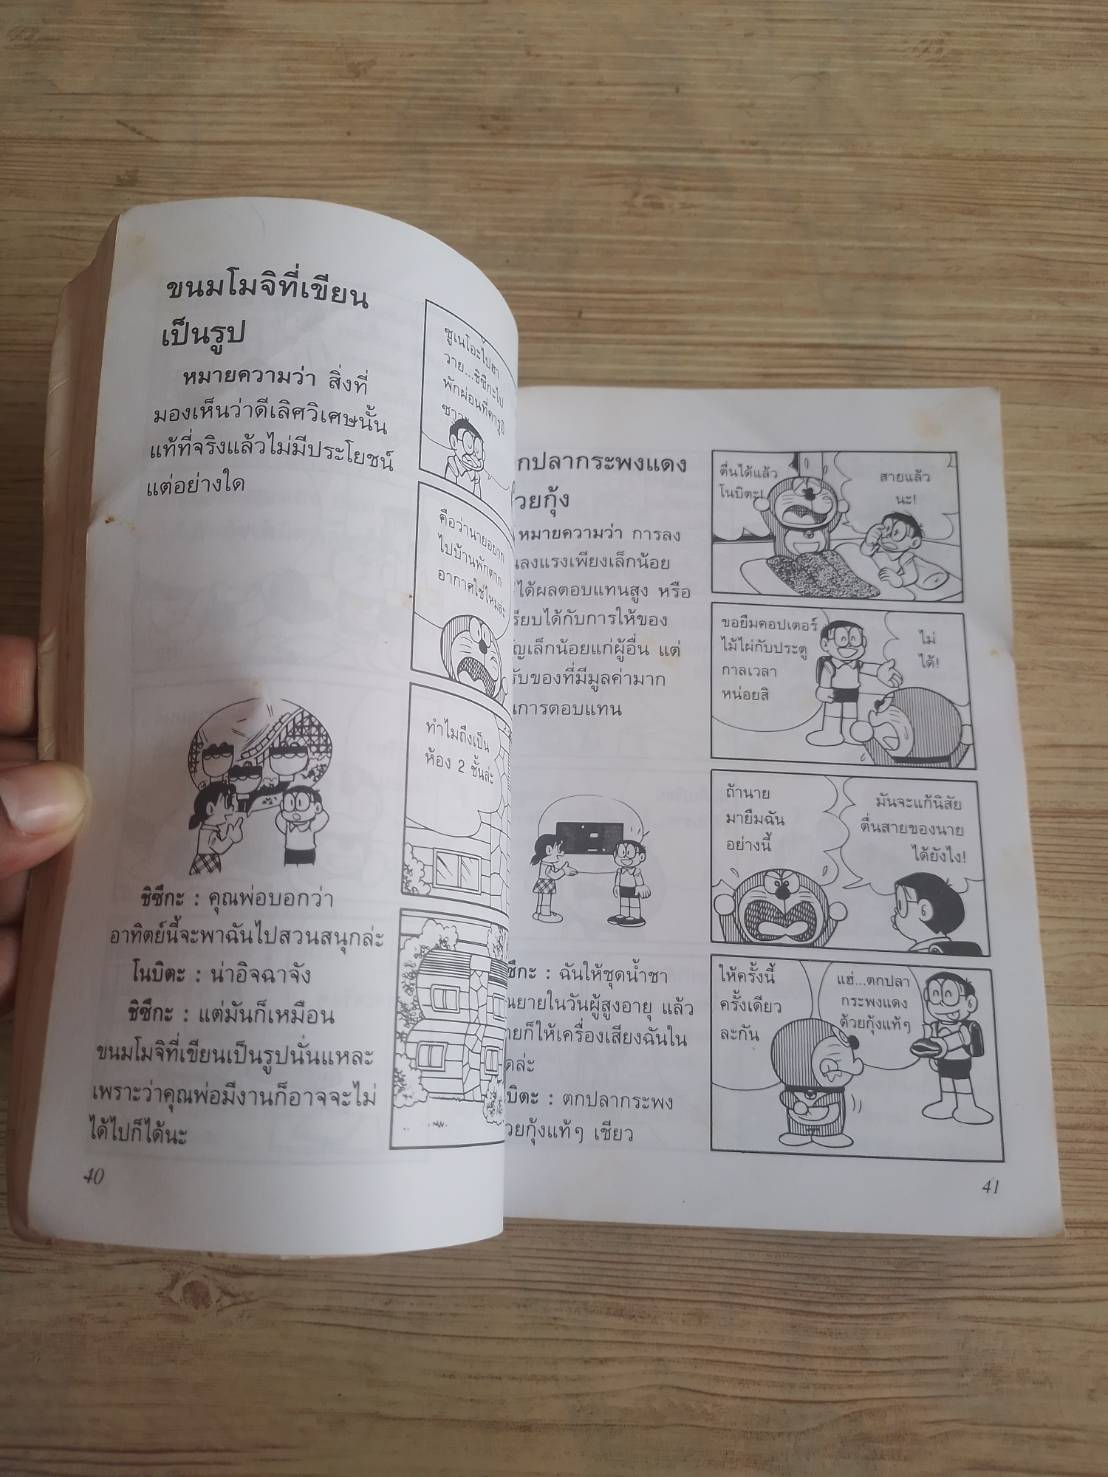 ขนมโมจิที่เขียน
เป็นรูป
หมายความว่า สิ่งที่
มองเห็นว่าดีเลิศวิเศษนั้น
แท้ที่จริงแล้วไม่มีประโยชน์
แต่อย่างใด
ชิซึกะ : คุณพ่อบอกว่า
อาทิตย์นี้จะพาฉันไปสวนสนุกล่ะ
โนบิตะ : น่าอิจฉาจัง
ชิซึกะ : แต่มันก็เหมือน
ขนมโมจิที่เขียนเป็นรูปนั่นแหละ
เพราะว่าคุณพ่อมีงานก็อาจจะไม่
ได้ไปก็ได้นะ
40
ซูเนโอะไปฮา
วาย...ชิซึกะไป
พักผ่อนที่
คือว่านายอยาก
ไปบ้านพักตาก
อากาศใช่ไหมล่ะ
ทำไมถึงเป็น
ห้อง 2 ชั้นล่ะ
กปลากระพงแดง
วยกุ้ง
หมายความว่า การลง
ลงแรงเพียงเล็กน้อย
ได้ผลตอบแทนสูง หรือ
รียบได้กับการให้ของ
ญเล็กน้อยแก่ผู้อื่น แต่
รับของที่มีมูลค่ามาก
นการตอบแทน
ซึกะ : ฉันให้ชุดน้ำชา
นยายในวันผู้สูงอายุ แล้ว
ายก็ให้เครื่องเสียงฉันใน
ล่ะ
บิตะ : ตกปลากระพง
วยกุ้งแท้ๆ เชียว
ตื่นได้แล้ว
โนบิตะ!
สายแล้ว
นะ!
ขอยืมคอปเตอร์
ไม้ไผ่กับประตู
กาลเวลา
หน่อยสิ
ไม่
ได้!
ถ้านาย
มายืมฉัน
อย่างนี้
มันจะแก้นิสัย
ตื่นสายของนาย
ได้ยังไง!
ให้ครั้งนี้
ครั้งเดียว
ละกัน
แฮ่...ตกปลา
กระพงแดง
ด้วยกุ้งแท้ๆ
41